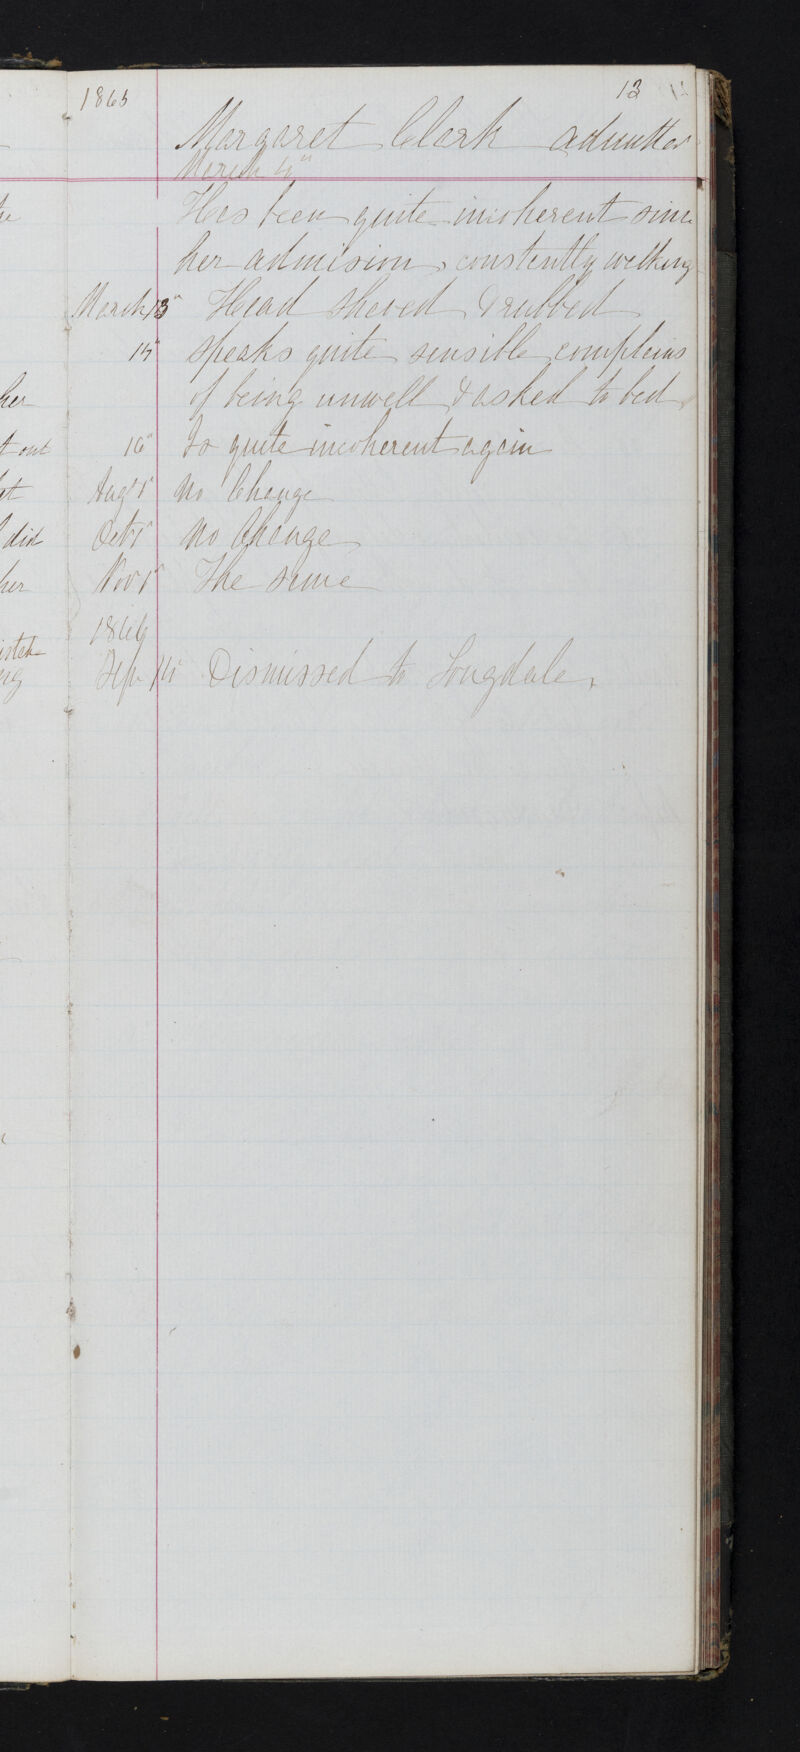 1865 13
Margaret Clark admitted
March 4"
Has been quite incoherent since
her admision, constently walking
March 13" Head shaved & rubbed
15" speaks quite sensible complains
of being unwell & asked to bed
her
16" Is quite incoherent again
t out
Augt 1" No Change
at
Oct 1" No Change
did
Nov 1" The same
her
1866
Sep 14" Dismissed to Longdale.